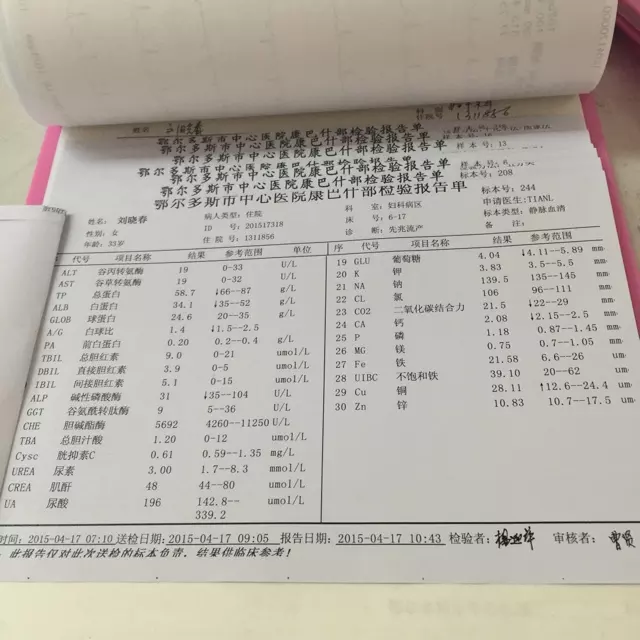 鄂尔多斯市中心医院康巴什部检验报告单
鄂尔多斯市中心医院康巴什部检验报告单
鄂尔多斯市中心医院康巴什部检验报告单
样本号: 13
鄂尔多斯市中心医院康巴什部检验报告单
标本号: 208
鄂尔多斯市中心医院康巴什部检验报告单
标本号: 244
姓名: 刘晓春 病人类型: 住院 科 室: 妇科病区 申请医生: TIANL
性别: 女 ID 号: 201517318 床 号: 6-17 标本类型: 静脉血清
年龄: 33岁 住 院 号: 1311856 诊 断: 先兆流产 备 注:
代号 项目名称 结果 参考范围 单位 序 代号 项目名称 结果 参考范围
ALT 谷丙转氨酶 19 0-33 U/L 19 GLU 葡萄糖 4.04 ↓4.11--5.89 mm
AST 谷草转氨酶 19 0--32 U/L 20 K 钾 3.83 3.5--5.5 mm
TP 总蛋白 58.7 ↓66--87 g/L 21 NA 钠 139.5 135--145 mm
ALB 白蛋白 34.1 ↓35--52 g/L 22 CL 氯 106 96--111 mm
GLOB 球蛋白 24.6 20--35 g/L 23 CO2 二氧化碳结合力 21.5 ↓22--29 mm
A/G 白球比 1.4 ↓1.5--2.5 24 CA 钙 2.08 ↓2.15--2.5 mm
PA 前白蛋白 0.20 0.2--0.4 g/L 25 P 磷 1.18 0.87--1.45 mm
TBIL 总胆红素 9.0 0-21 umol/L 26 MG 镁 0.75 0.7--1.05 mm
DBIL 直接胆红素 3.9 0--5 umol/L 27 Fe 铁 21.58 6.6--26 um
IBIL 间接胆红素 5.1 0--15 umol/L 28 UIBC 不饱和铁 39.10 20--62 um
ALP 碱性磷酸酶 31 ↓35--104 U/L 29 Cu 铜 28.11 ↑12.6--24.4 um
GGT 谷氨酰转肽酶 9 5--36 U/L 30 Zn 锌 10.83 10.7--17.5 um
CHE 胆碱酯酶 5692 4260--11250 U/L
TBA 总胆汁酸 1.20 0-12 umol/L
Cysc 胱抑素C 0.61 0.59--1.35 mg/L
UREA 尿素 3.00 1.7--8.3 mmol/L
CREA 肌酐 48 44--80 umol/L
UA 尿酸 196 142.8--339.2 umol/L
时间: 2015-04-17 07:10 送检日期: 2015-04-17 09:05 报告日期: 2015-04-17 10:43 检验者: 审核者:
此报告仅对此次送检的标本负责, 结果供临床参考!